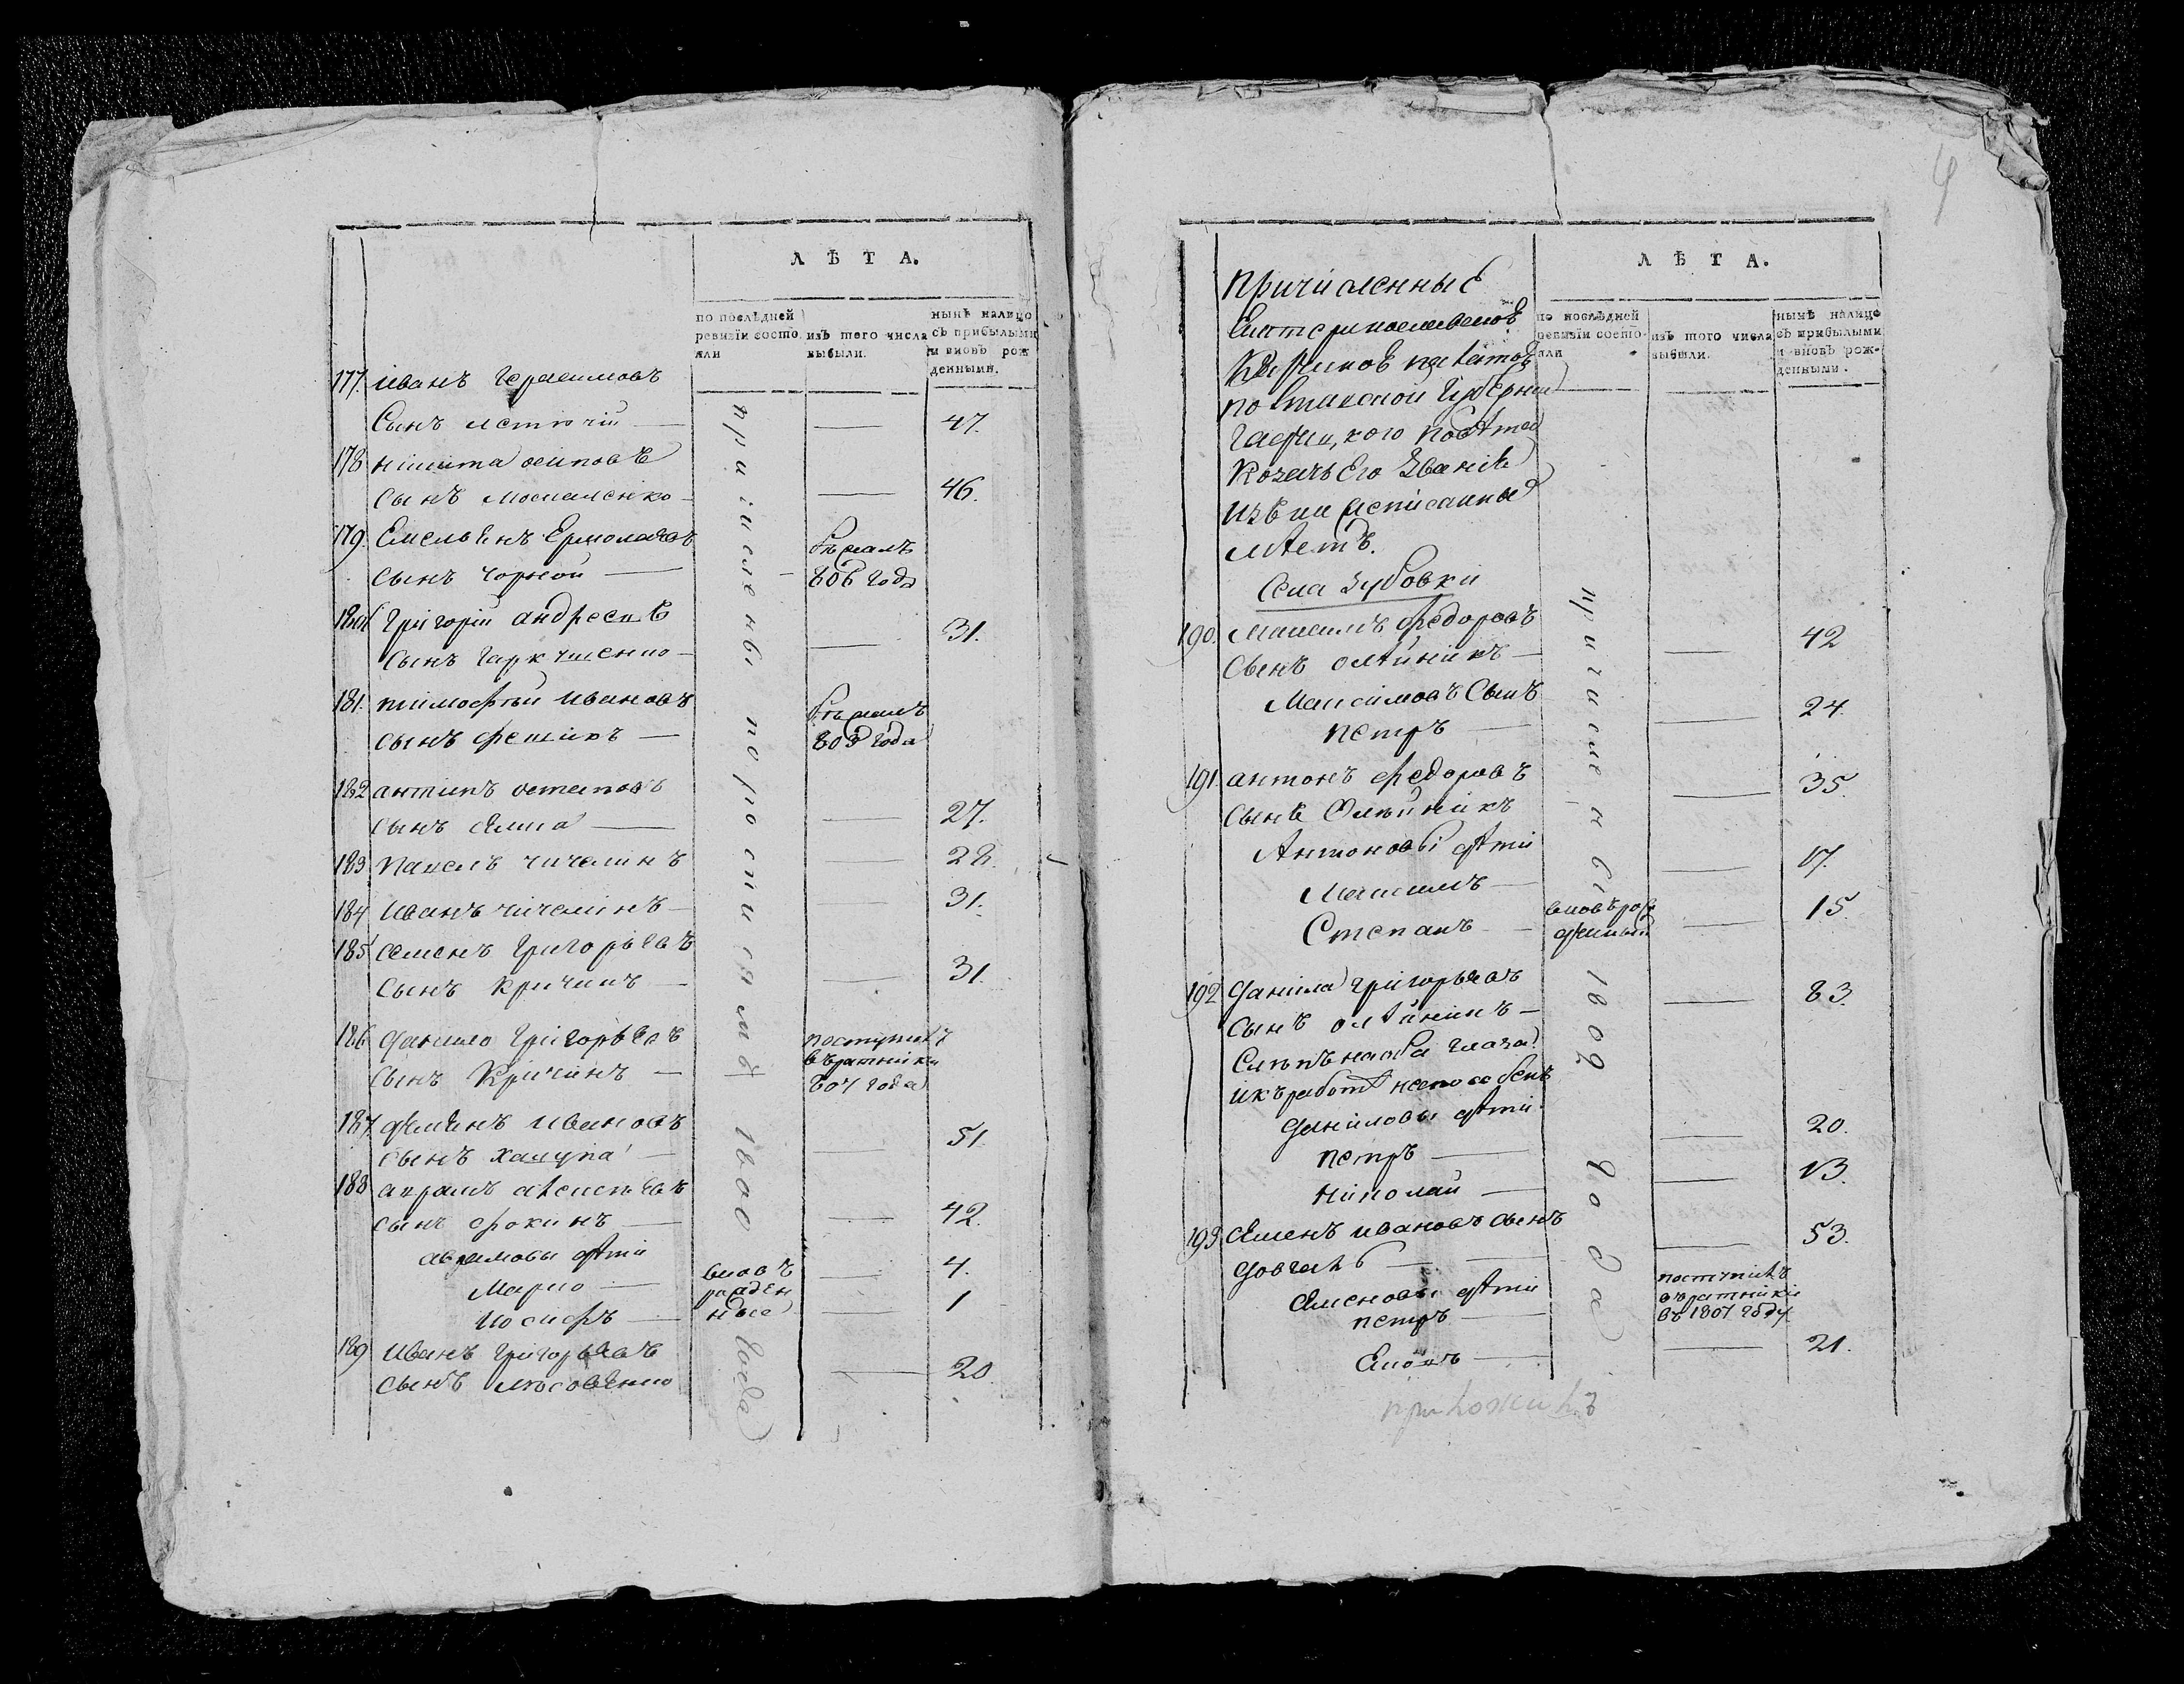 ЛѢТА.
по послѣдней
ревизіи состо
яли
изъ того числа
выбыли.
нынѣ налицо
съ прибылыми
и вновь рож
денными.
177. иванъ Герасимовъ
Сынъ
47.
178 никита осиповъ
сынъ москаленко
46.
179. Емельянъ Ермолаевъ
сынъ чорной
806 года
180 Григорій андреевъ
сынъ
31.
181. тимофѣй ивановъ
сынъ
803 года
182 антипъ остаповъ
сынъ
27.
183 Павелъ чичелинъ
28.
184 иванъ чичелинъ
31.
185 семенъ Григорьевъ
сынъ Кричинъ
31.
186 данило Григорьевъ
сынъ Кричинъ
поступилъ
въ ратники
807 года
187 демянъ ивановъ
сынъ халупа
51.
188 аврамъ
сынъ фокинъ
42.
аврамовы дѣти
Марко
4.
Иосифъ
1
вновь
рожден
ные
189 Иванъ Григорьевъ
сынъ лѣсовенко
20
причислены по росписямъ 1800 года
4
ЛѢТА.
по послѣдней
ревизіи состо-
яли
изъ того числа
выбыли.
нынѣ налицо
съ прибылыми
и вновь рож-
денными.
причисленные
по
Губерніи
Козачьего званія
лѣтъ.
Села Зубовки
190. Максимъ федоровъ
сынъ олѣйникъ
42
Максимовъ Сынъ
петръ
24.
191. антонъ федоровъ
сынъ Олѣйникъ
35.
Антоновы дѣти
Максимъ
17.
Степанъ
15.
вновь рож
денный
192 данила Григорьевъ
сынъ олѣйникъ
83.
Слѣпъ на оба глаза
и къ работѣ неспособенъ
даниловы дѣти
петръ
20.
николай
13.
193 Семенъ ивановъ сынъ
довгаль
53.
Семеновы дѣти
петръ
поступилъ
въ ратники
въ 1807 году
21.
причислены 1808 года